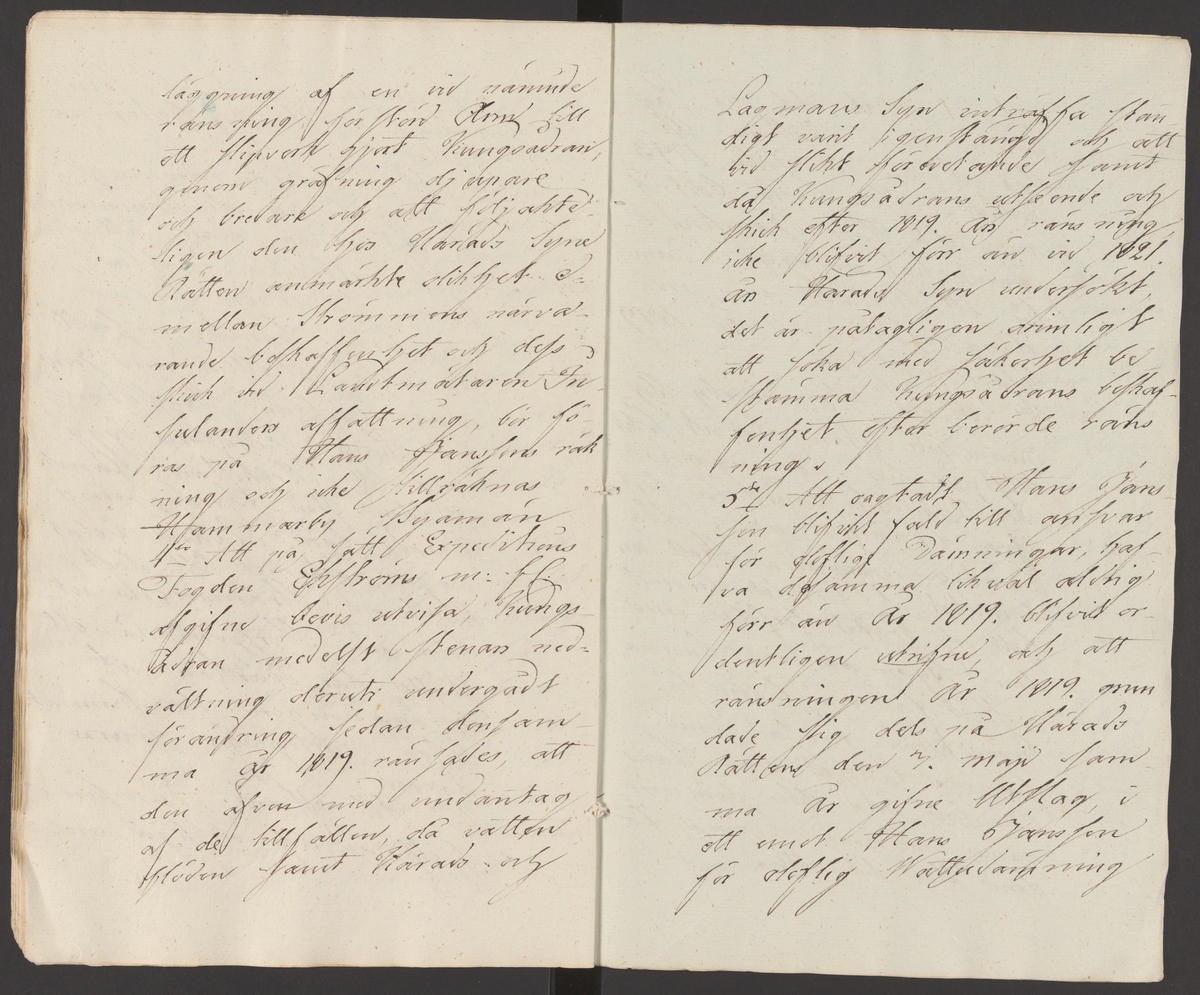 läggning af en vid nämnde
ränsning förstörd Arm till
ett slipverk gjort Kungsådran,
genom gräfning djupare
och bredare och att följakte-
ligen den hos Härads Syne
Rätten anmärkte olikhet e-
mellan Strömmens närva-
rande beskaffenhet och dess
skick vid Landtmätaren In-
sulanders affattning, bör fö-
ras på Hans Jansons räk
ning och icke tillräknas
Hammarby Byamän
4to Att på sätt Expeditions
Fogden Ekströms m: fl:
afgifne bevis utvisa, Kungs-
ådran medelst stenars ned-
vältning deruti undergådt
förändring sedan densam-
ma år 1819. ränsades, att
den äfven med undantag
af de tillfällen, då vatten
flöden samt Härads- och
Lagmans Syn inträffa stän
digt varit igenstängd och att
vid slikt förevetande samt
då Kungsådrans utseende och
skick efter 1819. års ränsning
icke blifvit förr än vid 1821.
års Härads Syn undersökt,
det är påtagligen orimligt
att söka med säkerhet be
stämma Kungsådrans beskaf-
fenhet efter berörde räns
ning.
5to Att oagtadt Hans Jans-
son blifvit fäld till answar
för olofliga Dämningar, haf-
va desamma likväl aldrig
förr än År 1819. blifvit or-
dentligen utrifne, och att
ränsningen År 1819. grun
dade sig dels på Härads
Rättens den 7. maji sam-
ma År gifne Utslag, i
ett emot Hans Jansson
för oloflig Wattudämning